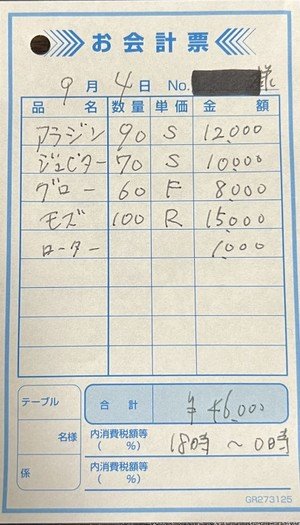 お会計票
9月4日 No. 様
品名 数量 単価 金額
アラジン 90 S 12,000
ジュピター 70 S 10,000
グロー 60 F 8,000
モズ 100 R 15,000
ローター 1,000
テーブル 合計 ¥46,000
名様 内消費税額等( %) 18時〜0時
係 内消費税額等( %)
GR273125